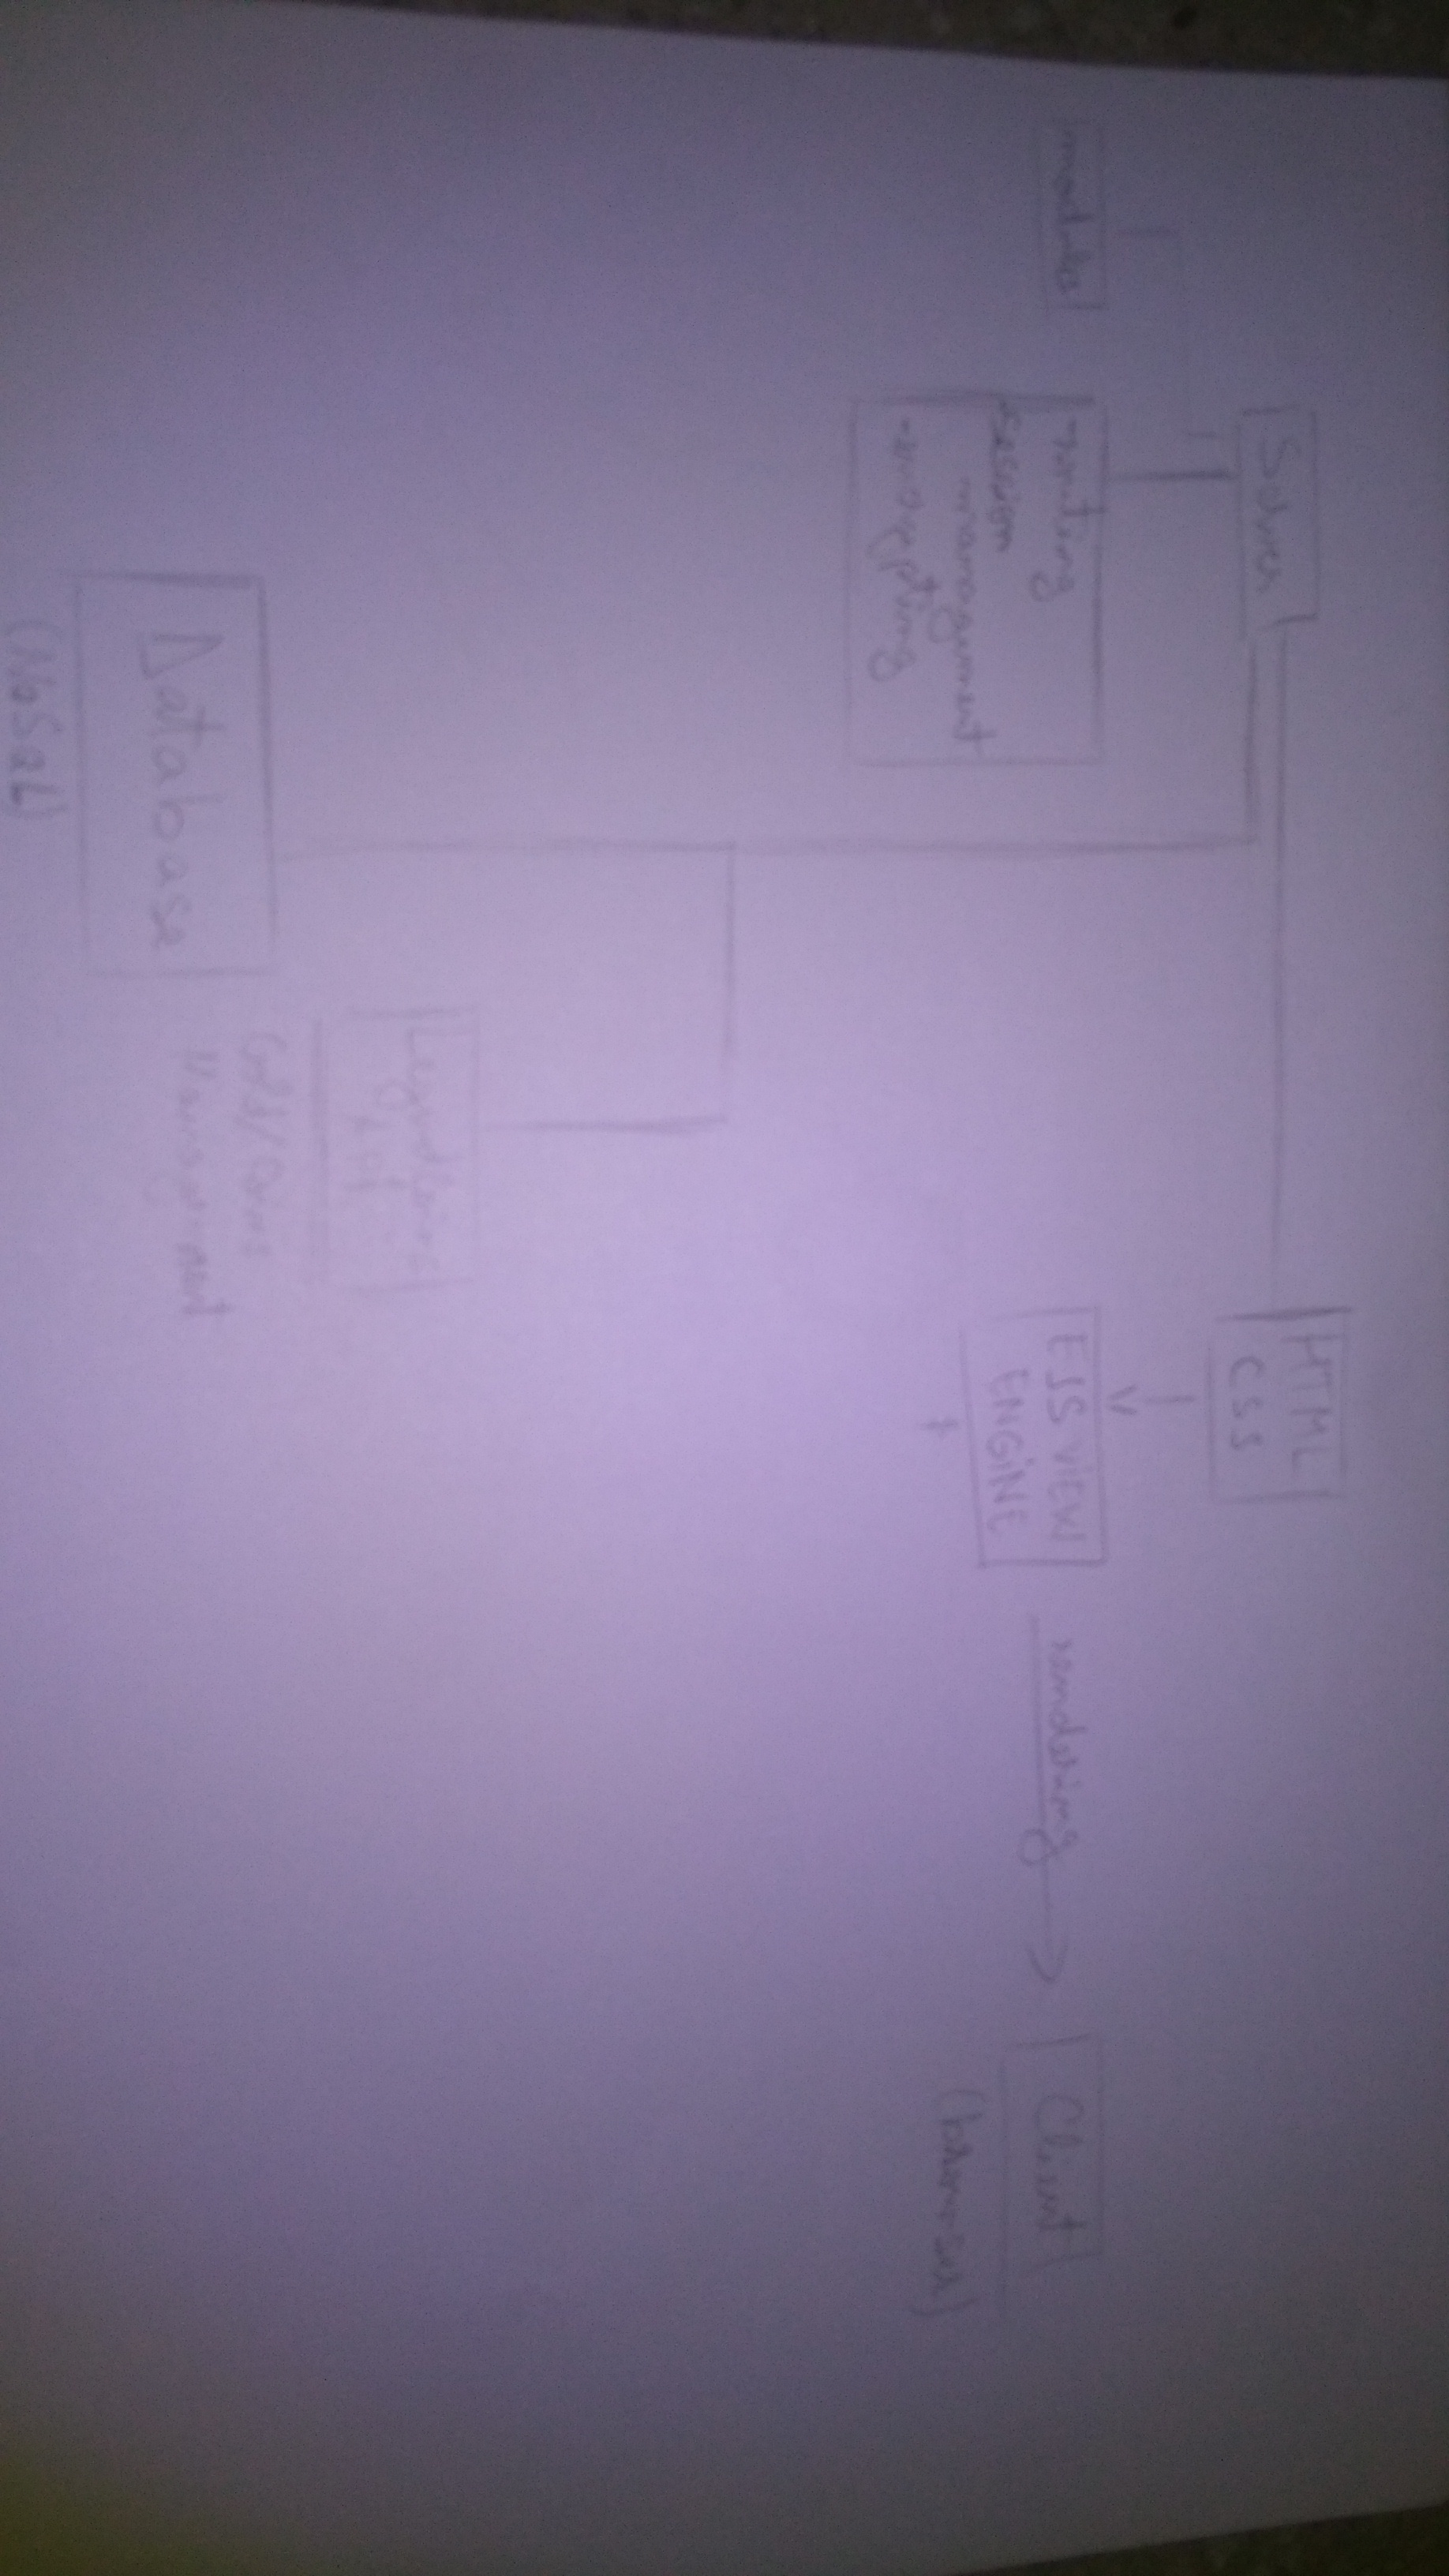 HTML
CSS
Server
modules
-routing
-session
management
-encrypting
EJS VIEW
ENGINE
rendering
Client
(browser)
Api
Gold/Coins
Management
Database
(NoSQL)